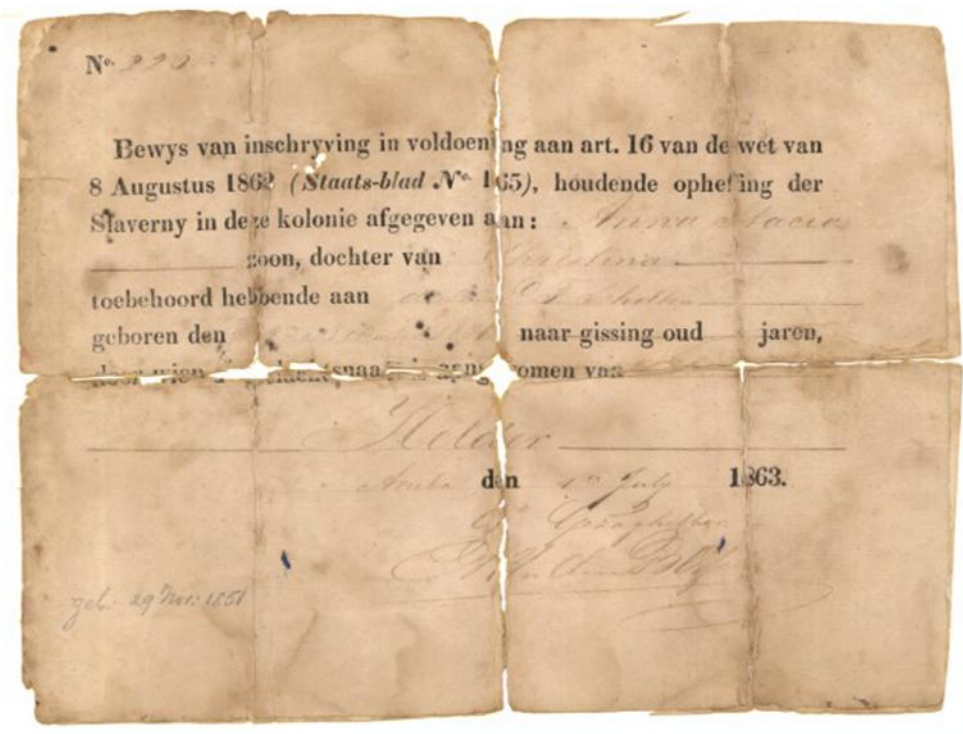 No. 220
Bewys van inschryving in voldoening aan art. 16 van de wet van
8 Augustus 1862 (Staats-blad No. 165), houdende opheffing der
Slaverny in deze kolonie afgegeven aan: Anna Stacia
zoon, dochter van Christina
toebehoord hebbende aan
geboren den naar gissing oud jaren,
aangenomen van
Helder
Aruba den 1 July 1863.
geb: 29 Nov: 1851